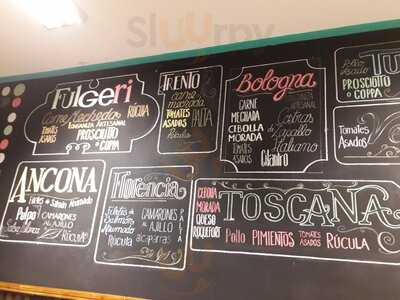 Sluurpy
FULGERI
Carne Mechada
RÚCULA
LONGANIZA ARTESANAL
TOMATES
ASADOS
PROSCIUTTO
o COPPA
TRENTO
carne
mechada
TOMATES
ASADOS
PALTA
Rúcula
Bologna
CARNE
MECHADA
CEBOLLA
MORADA
TOMATES
ASADOS
ARTESANAL
Cabras
Zapallo
Italiano
Cilantro
TU
Pollo
Asado
PROSCIUTTO
o COPPA
Tomates
Asados
ANCONA
Filetes de Salmón Ahumado
Pulpo
CAMARONES
AL AJILLO
Salsa blanca
RÚCULA
Florencia
Filetes de
Salmón
Ahumado
Rúcula
CAMARONES
AL AJILLO
alcaparras
TOSCANA
CEBOLLA
MORADA
QUESO
ROQUEFORT
Pollo PIMIENTOS TOMATES ASADOS RÚCULA